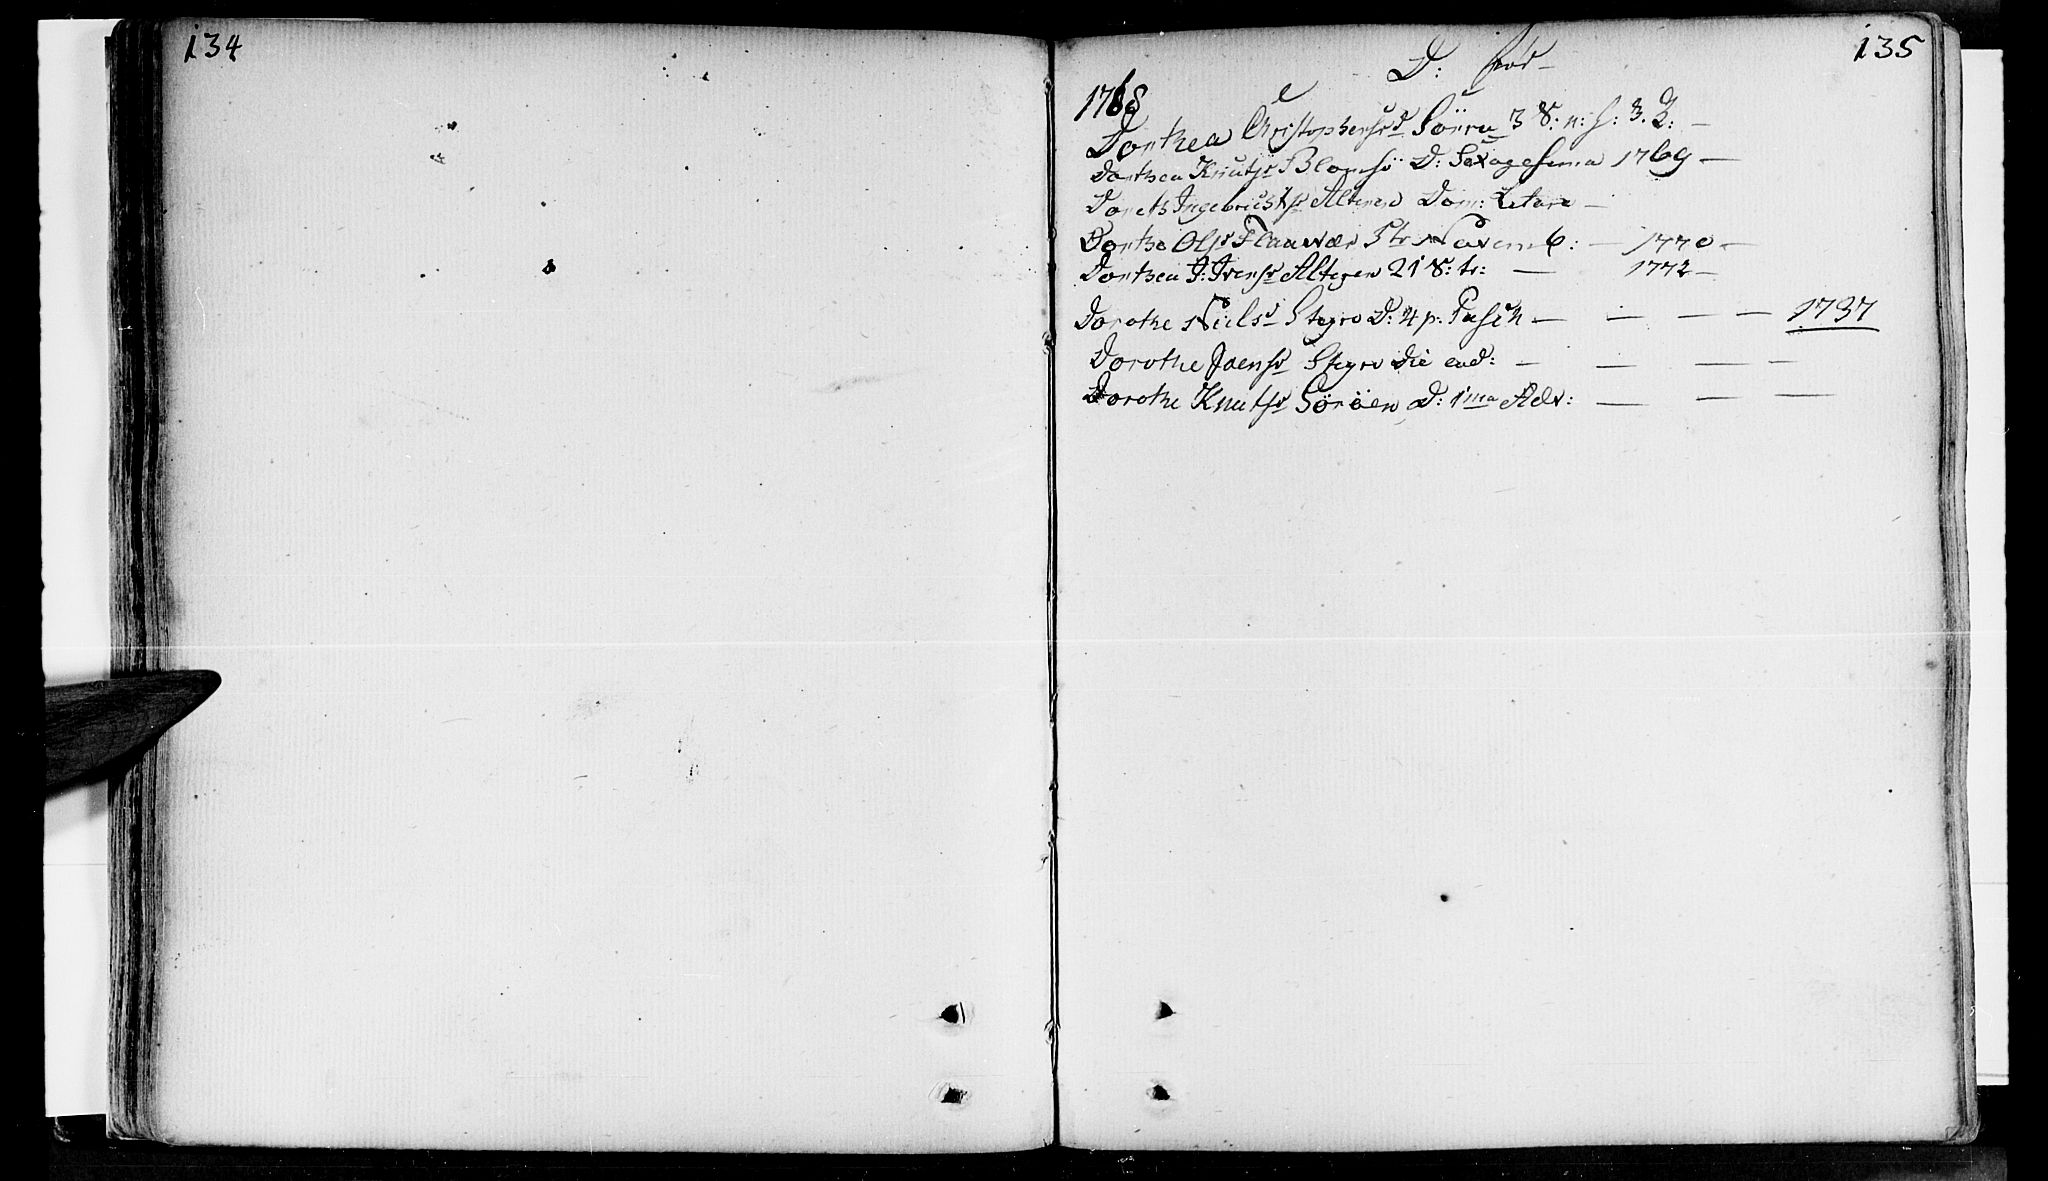 134
135
D: fød
1768
Dorthea Christophersd Sörra 3 S: n: h: 3. K:
Dorthea Knutsd Blomsö D: Sexagesima 1769
Doreth Ingebricstsd Alteren Dom: Letare
Dorthe Olsd Flaavær Novemb: 1770
Dorthea J: Ivensd Alteren 21 S: tr: 1772
Dorothe Nielsd Stegro D: 4 p: Pasch 1797
Dorothe Joensd Stegro Die eod:
Dorothe Knutsd Söröen D: 1ma Adv: